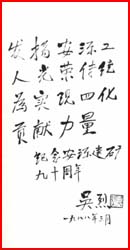 发揚安源工
人光荣传统
為实现四化
贡献力量
纪念安源建矿
九十周年
吴烈
一九八八年三月